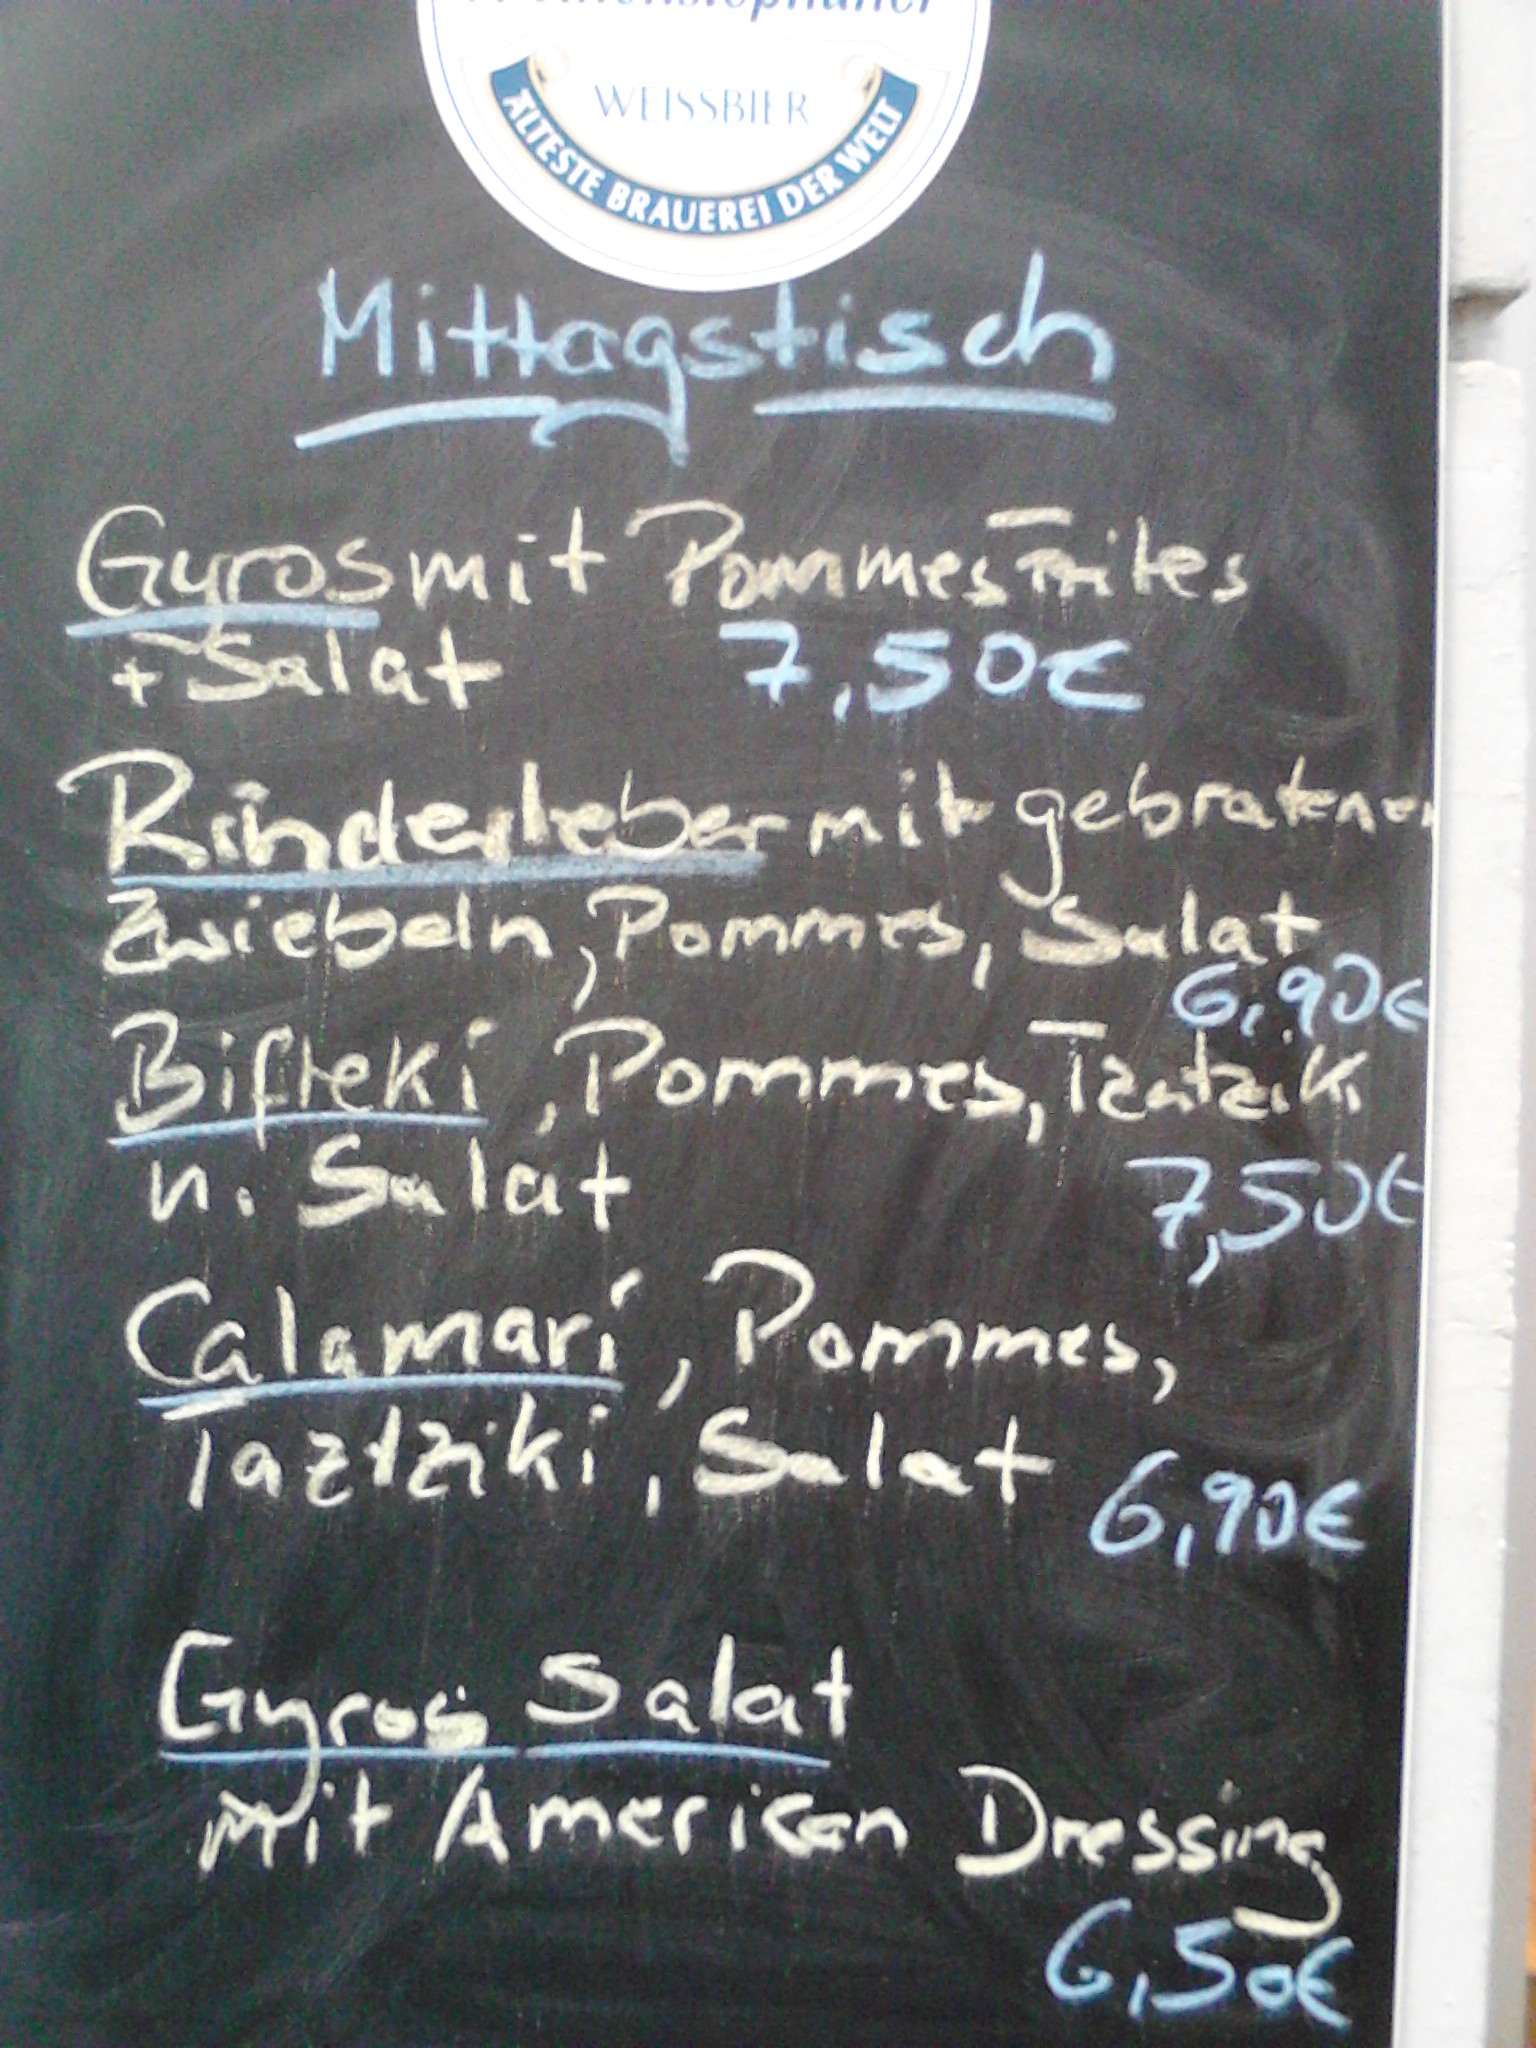 WEISSBIER
ÄLTESTE BRAUEREI DER WELT
Mittagstisch
Gyros mit Pommes Frites
+ Salat 7,50€
Rinderleber mit gebratenen
Zwiebeln, Pommes, Salat
6,90€
Bifteki, Pommes, Tzatziki
u. Salat 7,50€
Calamari, Pommes,
Taztziki, Salat 6,90€
Gyros Salat
mit American Dressing
6,50€